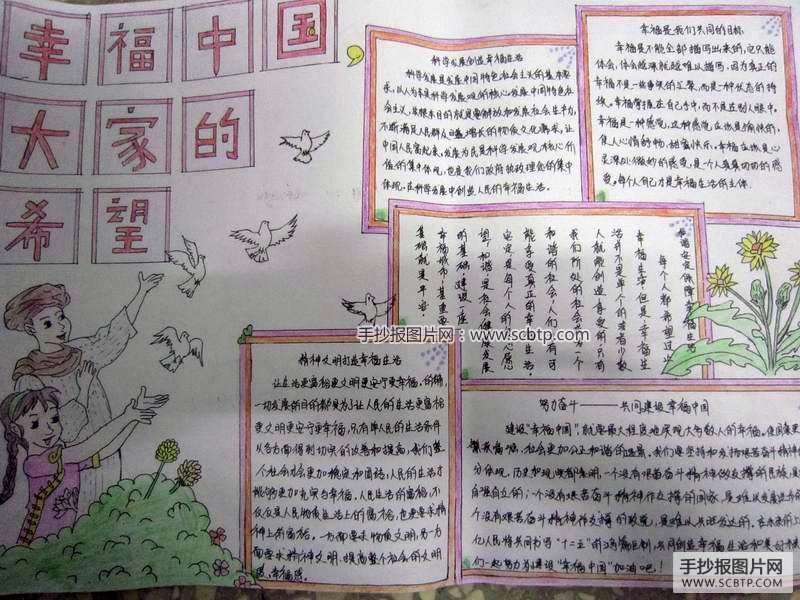 幸福中国,
大家的
希望
科学发展创造幸福生活
科学发展是发展中国特色社会主义的基本要
求,以人为本是科学发展观的核心。发展中国特色社
会主义,发展本身的就是要解放和发展社会生产力,
不断满足人民群众日益增长的物质文化需求,让
中国人民富起来。发展为民是科学发展观核心价
值的集中体现,也是我们政府执政理念的集中
体现。在科学发展中创造人民的幸福生活。
幸福是我们共同的目标
幸福是不能全部描写出来的,它只能
体会,体会越深就越难以描写,因为真正的
幸福不是一些事实的汇聚,而是一种状态的持
续。幸福掌握在自己手中,而不是在别人眼中。
幸福是一种感觉,这种感觉应该是愉快的,
使人心情舒畅,甜蜜快乐。幸福应该是心
灵深处微妙的感觉,是一个人真真切切的感
觉。每个人自己才是幸福生活的主体.
和谐安定保障幸福生活
每个人都希望过上
幸福生活,但是,幸福生
活并不是单个的或者少数
人就能创造享受的,只有
我们所处的社会是一个
和谐的社会,人们才有可
能享受真正的幸福生活。
安定,是每个人的心愿
望,和谐,是社会健康发展
明基础。建设一座
幸福城市,最重要
基础就是平安。
手抄报图片网:www.scbtp.com
精神文明打造幸福生活
让生活更富裕更文明更安宁更幸福,的确,
一切发展的目的都是为了让人民的生活更富裕
更文明更安宁更幸福,只有单人民的生活条件
从各方面得到切实的改善和提高,我们整
个社会才会更加稳定和团结,人民的生活才
能够更加充实与幸福。人民生活的富裕,不
仅仅是人民物质生活上的富裕,也更要求精
神上的富裕。一方面要求物质文明,另一方
面要求精神文明。提高整个社会的文明
感、幸福感。
努力奋斗——共同建设幸福中国
建设"幸福中国",就是最大程度地实现大多数人的幸福。使国家更
繁荣富强,社会更加公正和谐的远景,我们要坚持和发扬艰苦奋斗精神
分体现。历史和现实都表明,一个没有艰苦奋斗精神做支撑的民族,是
自强自立的;一个没有艰苦奋斗精神作支撑的国家,是难以发展进步的
个没有艰苦奋斗精神作支撑的政党,是难以兴旺发达的。在未来的
亿人民将共同书写"十二五"的
们一起努力为建设"幸福中国"加油吧!
手抄报图片网
WWW.SCBTP.COM